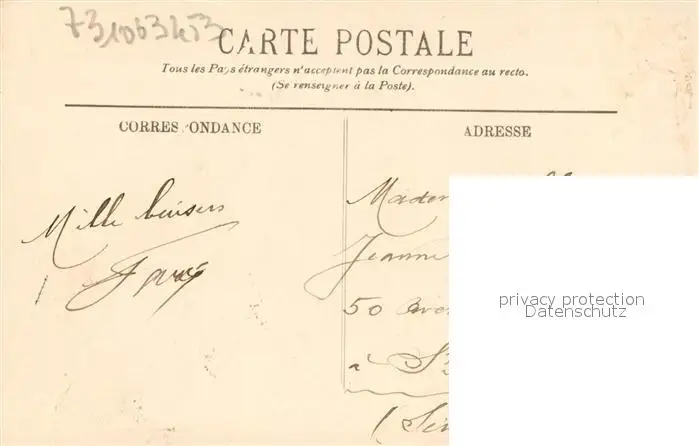 73106343
CARTE POSTALE
Tous les Pays étrangers n'acceptent pas la Correspondance au recto.
(Se renseigner à la Poste).
CORRES ONDANCE
ADRESSE
Mille baisers
Madem
Jeanne
50
à S
privacy protection
Datenschutz